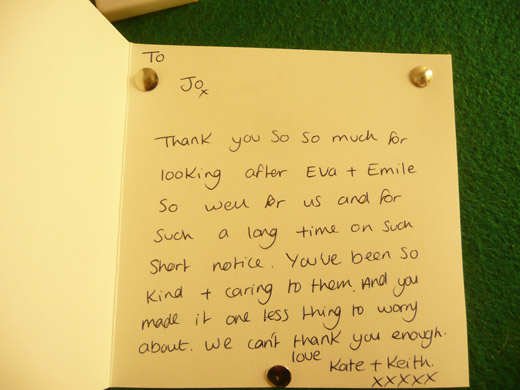 To
Jo x
Thank you so so much for
looking after Eva + Emile
So well for us and for
Such a long time on such
Short notice. You've been so
kind + caring to them. And you
made it one less thing to worry
about. We can't thank you enough.
love
Kate + Keith.
xxxxx